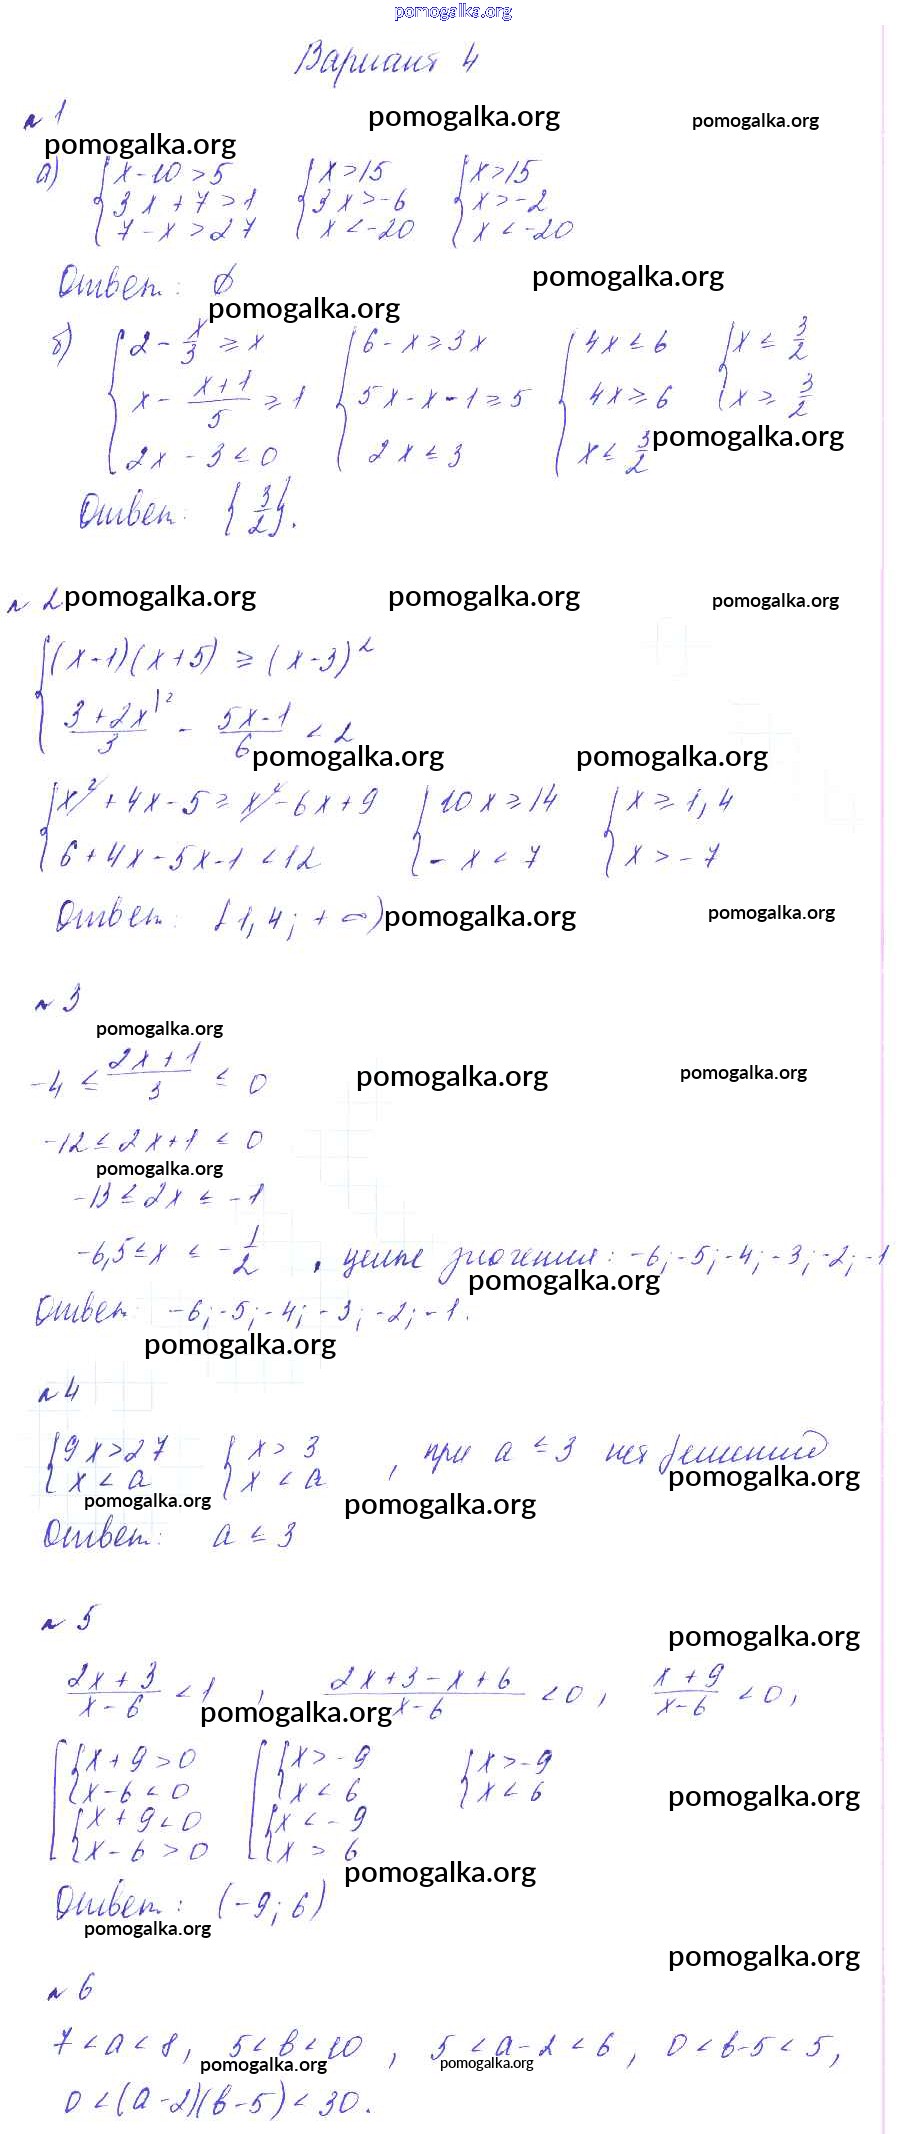 pomogalka.org
Вариант 4
№1
pomogalka.org pomogalka.org
pomogalka.org
а) { x - 10 > 5 { x > 15 { x > 15
3x + 7 > 1 3x > -6 x > -2
7 - x > 27 x < -20 x < -20
Ответ: ∅ pomogalka.org
pomogalka.org
б) { 2 - x/3 ≥ x { 6 - x ≥ 3x { 4x ≤ 6 { x ≤ 3/2
x - (x+1)/5 ≥ 1 5x - x - 1 ≥ 5 4x ≥ 6 x ≥ 3/2
2x - 3 ≤ 0 2x ≤ 3 x ≤ 3/2 pomogalka.org
Ответ: {3/2}.
№2 pomogalka.org pomogalka.org pomogalka.org
{ (x-1)(x+5) ≥ (x-3)²
(3+2x)/3 |² - (5x-1)/6 < 2
pomogalka.org pomogalka.org
{ x² + 4x - 5 ≥ x² - 6x + 9 { 10x ≥ 14 { x ≥ 1,4
6 + 4x - 5x - 1 < 12 - x < 7 x > -7
Ответ: [1,4; +∞) pomogalka.org pomogalka.org
№3
pomogalka.org
-4 ≤ (2x+1)/3 ≤ 0 pomogalka.org pomogalka.org
-12 ≤ 2x+1 ≤ 0
pomogalka.org
-13 ≤ 2x ≤ -1
-6,5 ≤ x ≤ -1/2 , целые значения: -6; -5; -4; -3; -2; -1
pomogalka.org
Ответ: -6; -5; -4; -3; -2; -1.
pomogalka.org
№4
{ 9x > 27 { x > 3 , при a ≤ 3 нет решений
x < a x < a
pomogalka.org
pomogalka.org pomogalka.org
Ответ: a ≤ 3
№5
pomogalka.org
(2x+3)/(x-6) < 1 , (2x+3-x+6)/(x-6) < 0 , (x+9)/(x-6) < 0 ,
pomogalka.org
[ { x+9 > 0 [ { x > -9 { x > -9
x-6 < 0 x < 6 x < 6
{ x+9 < 0 { x < -9
x-6 > 0 x > 6
pomogalka.org
pomogalka.org
Ответ: (-9; 6)
pomogalka.org
pomogalka.org
№6
7 < a < 8, 5 < b < 10 , 5 < a-2 < 6 , 0 < b-5 < 5 ,
pomogalka.org pomogalka.org
0 < (a-2)(b-5) < 30.